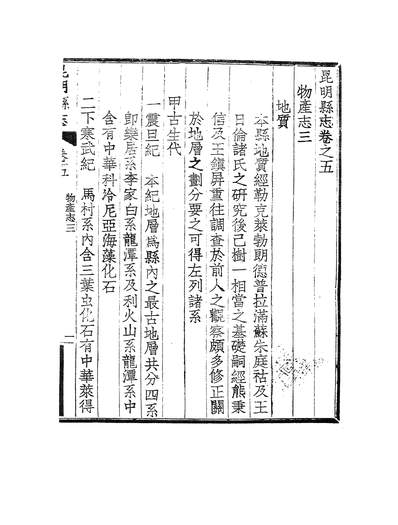 昆明縣志卷之五
物產志三
地質
本縣地質經勒克萊勃朗德普拉滿蘇朱庭祜及王
曰倫諸氏之研究後已樹一相當之基礎嗣經熊秉
信及王鎮屏重往調查於前人之觀察頗多修正關
於地層之劃分要之可得左列諸系
甲古生代
一震旦紀 本紀地層爲縣內之最古地層共分四系
卽樂居系李家白系龍潭系及利火山系龍潭系中
含有中華科冷尼亞海藻化石
二下寒武紀 馬村系內含三葉虫化石有中華萊得
昆明縣志 卷五 物產志三 一